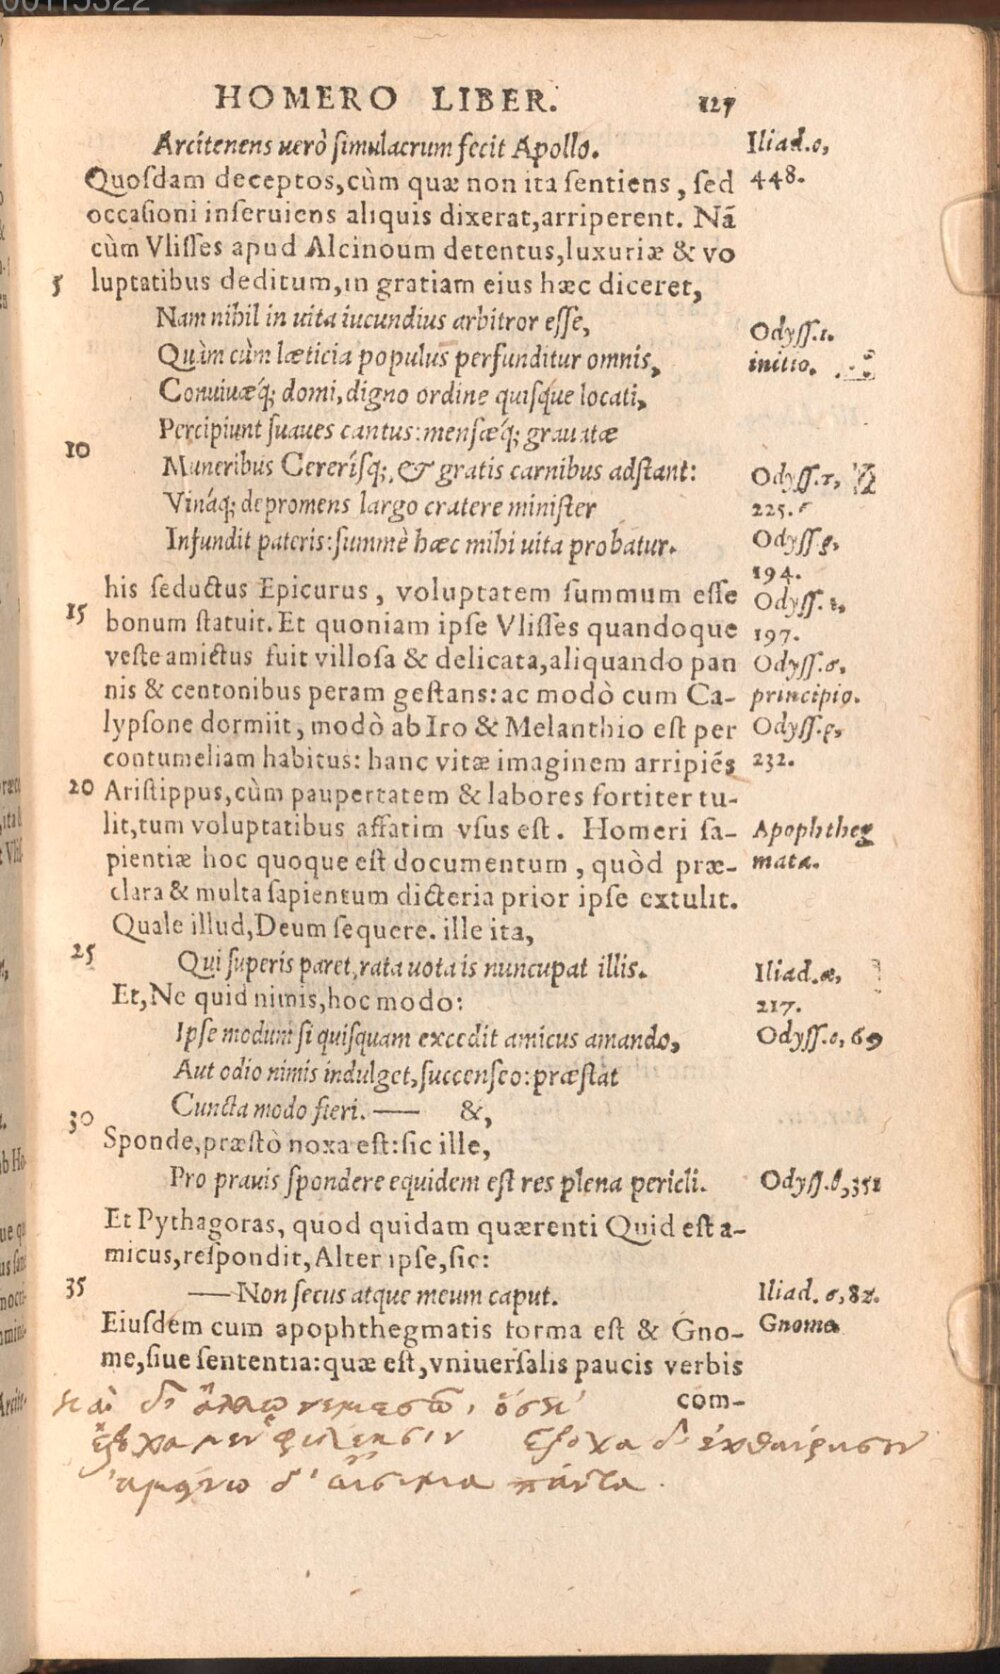 00115322
HOMERO LIBER. 127
Arcitenens uerò ſimulacrum fecit Apollo. Iliad.ε,
Quoſdam deceptos, cùm quæ non ita ſentiens, ſed 448.
occaſioni inſeruiens aliquis dixerat, arriperent. Nã
cùm Vliſſes apud Alcinoum detentus, luxuriæ & vo
5 luptatibus deditum, in gratiam eius hæc diceret,
Nam nihil in uita iucundius arbitror eſſe, Odyſſ.ι.
Quàm cùm læticia populus perfunditur omnis, initio.
Conuiuæq́; domi, digno ordine quiſque locati,
Percipiunt ſuaues cantus: menſæq́; grauatæ
10 Muneribus Cereríſq;, & gratis carnibus adſtant: Odyſſ.τ,
Vináq; depromens largo cratere miniſter 225.
Infundit pateris: ſummè hæc mihi uita probatur. Odyſſ.ρ,
194.
his ſeductus Epicurus, voluptatem ſummum eſſe Odyſſ.ε,
15 bonum ſtatuit. Et quoniam ipſe Vliſſes quandoque 197.
veſte amictus fuit villoſa & delicata, aliquando pan Odyſſ.σ,
nis & centonibus peram geſtans: ac modò cum Ca- principio.
lypſone dormiit, modò ab Iro & Melanthio eſt per Odyſſ.ρ,
contumeliam habitus: hanc vitæ imaginem arripiẽs 232.
20 Ariſtippus, cùm paupertatem & labores fortiter tu-
lit, tum voluptatibus affatim vſus eſt. Homeri ſa- Apophtheg
pientiæ hoc quoque eſt documentum, quòd præ- mata.
clara & multa ſapientum dicteria prior ipſe extulit.
Quale illud, Deum ſequere. ille ita,
25 Qui ſuperis paret, rata uota is nuncupat illis. Iliad.α,
Et, Ne quid nimis, hoc modo: 217.
Ipſe modum ſi quiſquam excedit amicus amando, Odyſſ.ο, 69
Aut odio nimis indulget, ſuccenſeo: præſtat
Cuncta modo fieri. — &,
30 Sponde, præſtò noxa eſt: ſic ille,
Pro prauis ſpondere equidem eſt res plena pericli. Odyſſ.θ, 351
Et Pythagoras, quod quidam quærenti Quid eſt a-
micus, reſpondit, Alter ipſe, ſic:
35 — Non ſecus atque meum caput. Iliad.σ, 82.
Eiuſdem cum apophthegmatis forma eſt & Gno- Gnomæ
me, ſiue ſententia: quæ eſt, vniuerſalis paucis verbis
com-
καὶ δ' ἄλλῳ νεμεσῶ, ὅς κ'
ἔξοχα μεν φιλέησιν ἔξοχα δ' ἐχθαίρησιν
ἀμείνω δ' αἴσιμα πάντα.